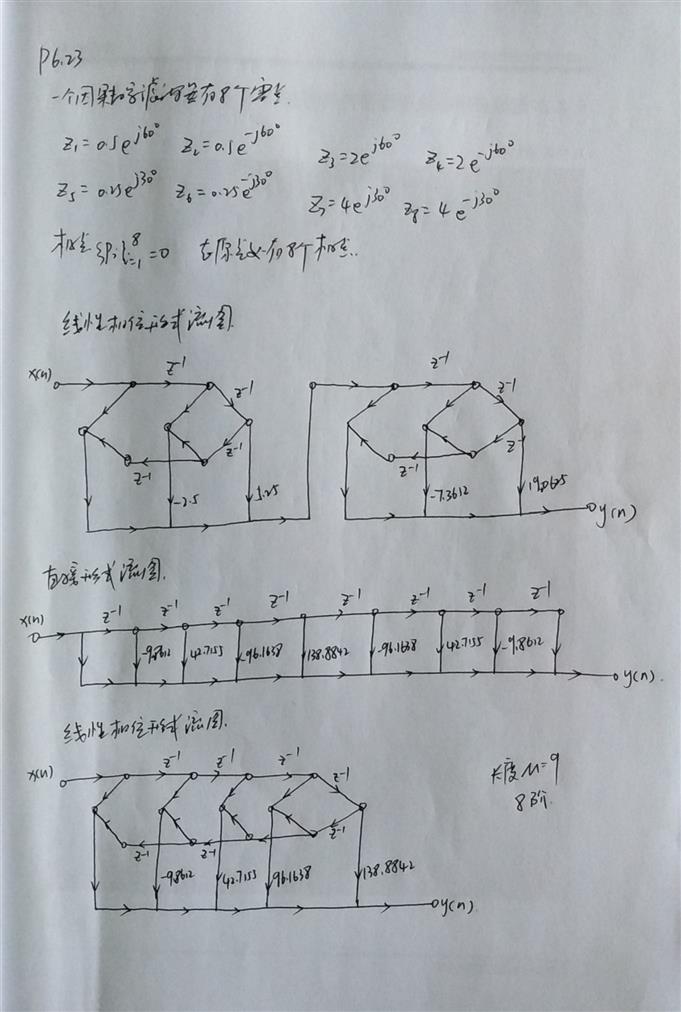 P6.23
一个因果数字滤波器有8个零点.
z₁=0.5e^{j60°} z₂=0.5e^{-j60°} z₃=2e^{j60°} z₄=2e^{-j60°}
z₅=0.25e^{j30°} z₆=0.25e^{-j30°} z₇=4e^{j30°} z₈=4e^{-j30°}
极点 {Pi}⁸ᵢ₌₁=0 有8个极点.
线性相位形式流图.
x(n) z⁻¹ z⁻¹ z⁻¹ z⁻¹
z⁻¹ z⁻¹ z⁻¹ z
-2.5 5.25 -7.3612 19.0625 y(n)
直接形式流图.
x(n) z⁻¹ z⁻¹ z⁻¹ z⁻¹ z⁻¹ z⁻¹ z⁻¹ z⁻¹
-9.8612 42.7155 -96.1638 138.8842 -96.1638 42.7155 -9.8612
y(n)
线性相位形式流图.
x(n) z⁻¹ z⁻¹ z⁻¹ z⁻¹
长度M=9
8阶
z⁻¹ z⁻¹ z⁻¹
-9.8612 42.7155 -96.1638 138.8842
y(n)